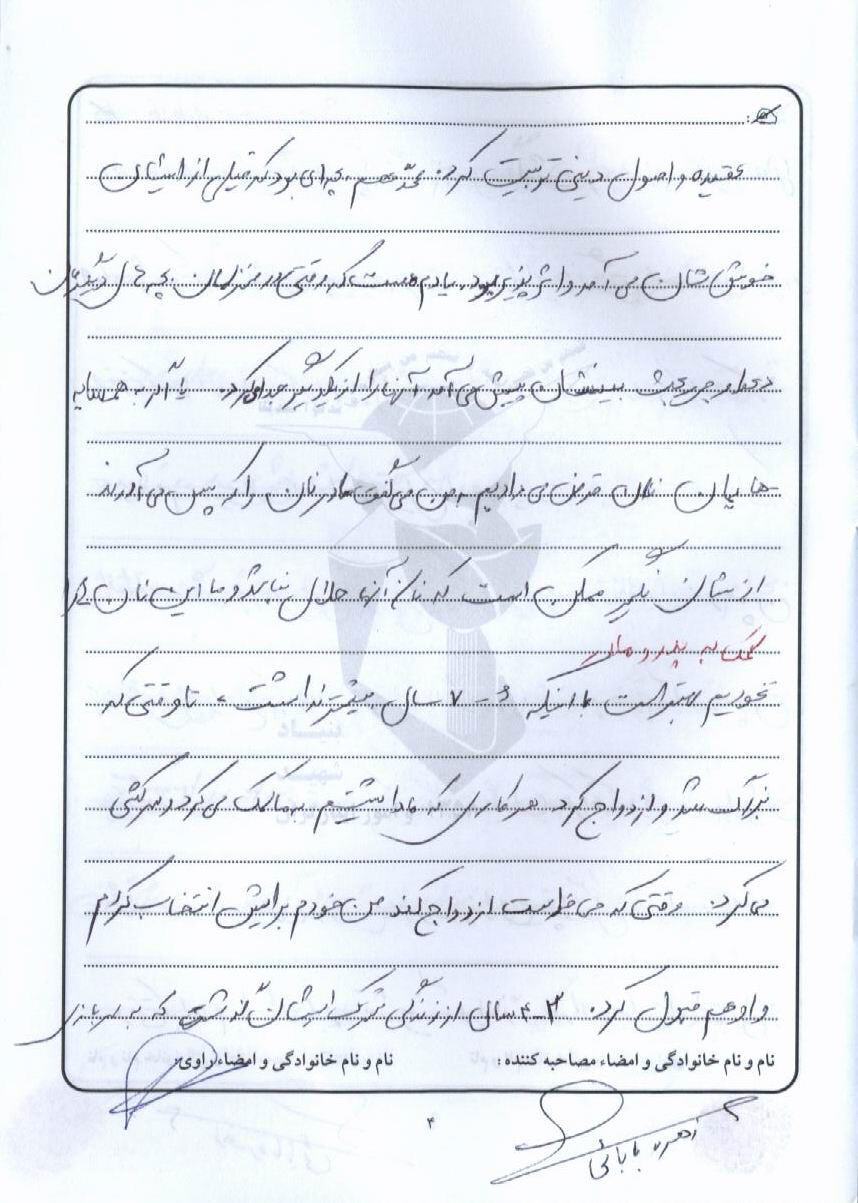 عقیده و اصول دینی تربیت کرد. محمد هم بچه‌ای بود که خیلی از ایشان
خوششان می آمد و اثر پذیر بود. یادم هست که وقتی در منزلمان بچه های دیگران
دعوا و جر و بحث بینشان پیش می آمد آنها را از یکدیگر جدا می‌کرد. یا اگر به همسایه
هایمان نان قرض می دادیم به من می گفت مادر نان را که پس می آورند
ازشان نگیر ممکن است که نان آنها حلال نباشد و ما این نان را
کمک به پدر و مادر
نخوریم بهتر است با اینکه ۶-۷ سال بیشتر نداشت، تا وقتی که
بزرگ شد و ازدواج کرد هر کاری که ما داشتیم به ما کمک می کرد و سرکشی
می کرد. وقتی که می خواست ازدواج کند من خودم برایش انتخاب کردم
و او هم قبول کرد. ۳-۴ سال از زندگی مشترک ایشان گذشت که به سربازی
نام و نام خانوادگی و امضاء مصاحبه کننده: نام و نام خانوادگی و امضاء راوی:
۴
زهره بابائی
بنیاد
شهید